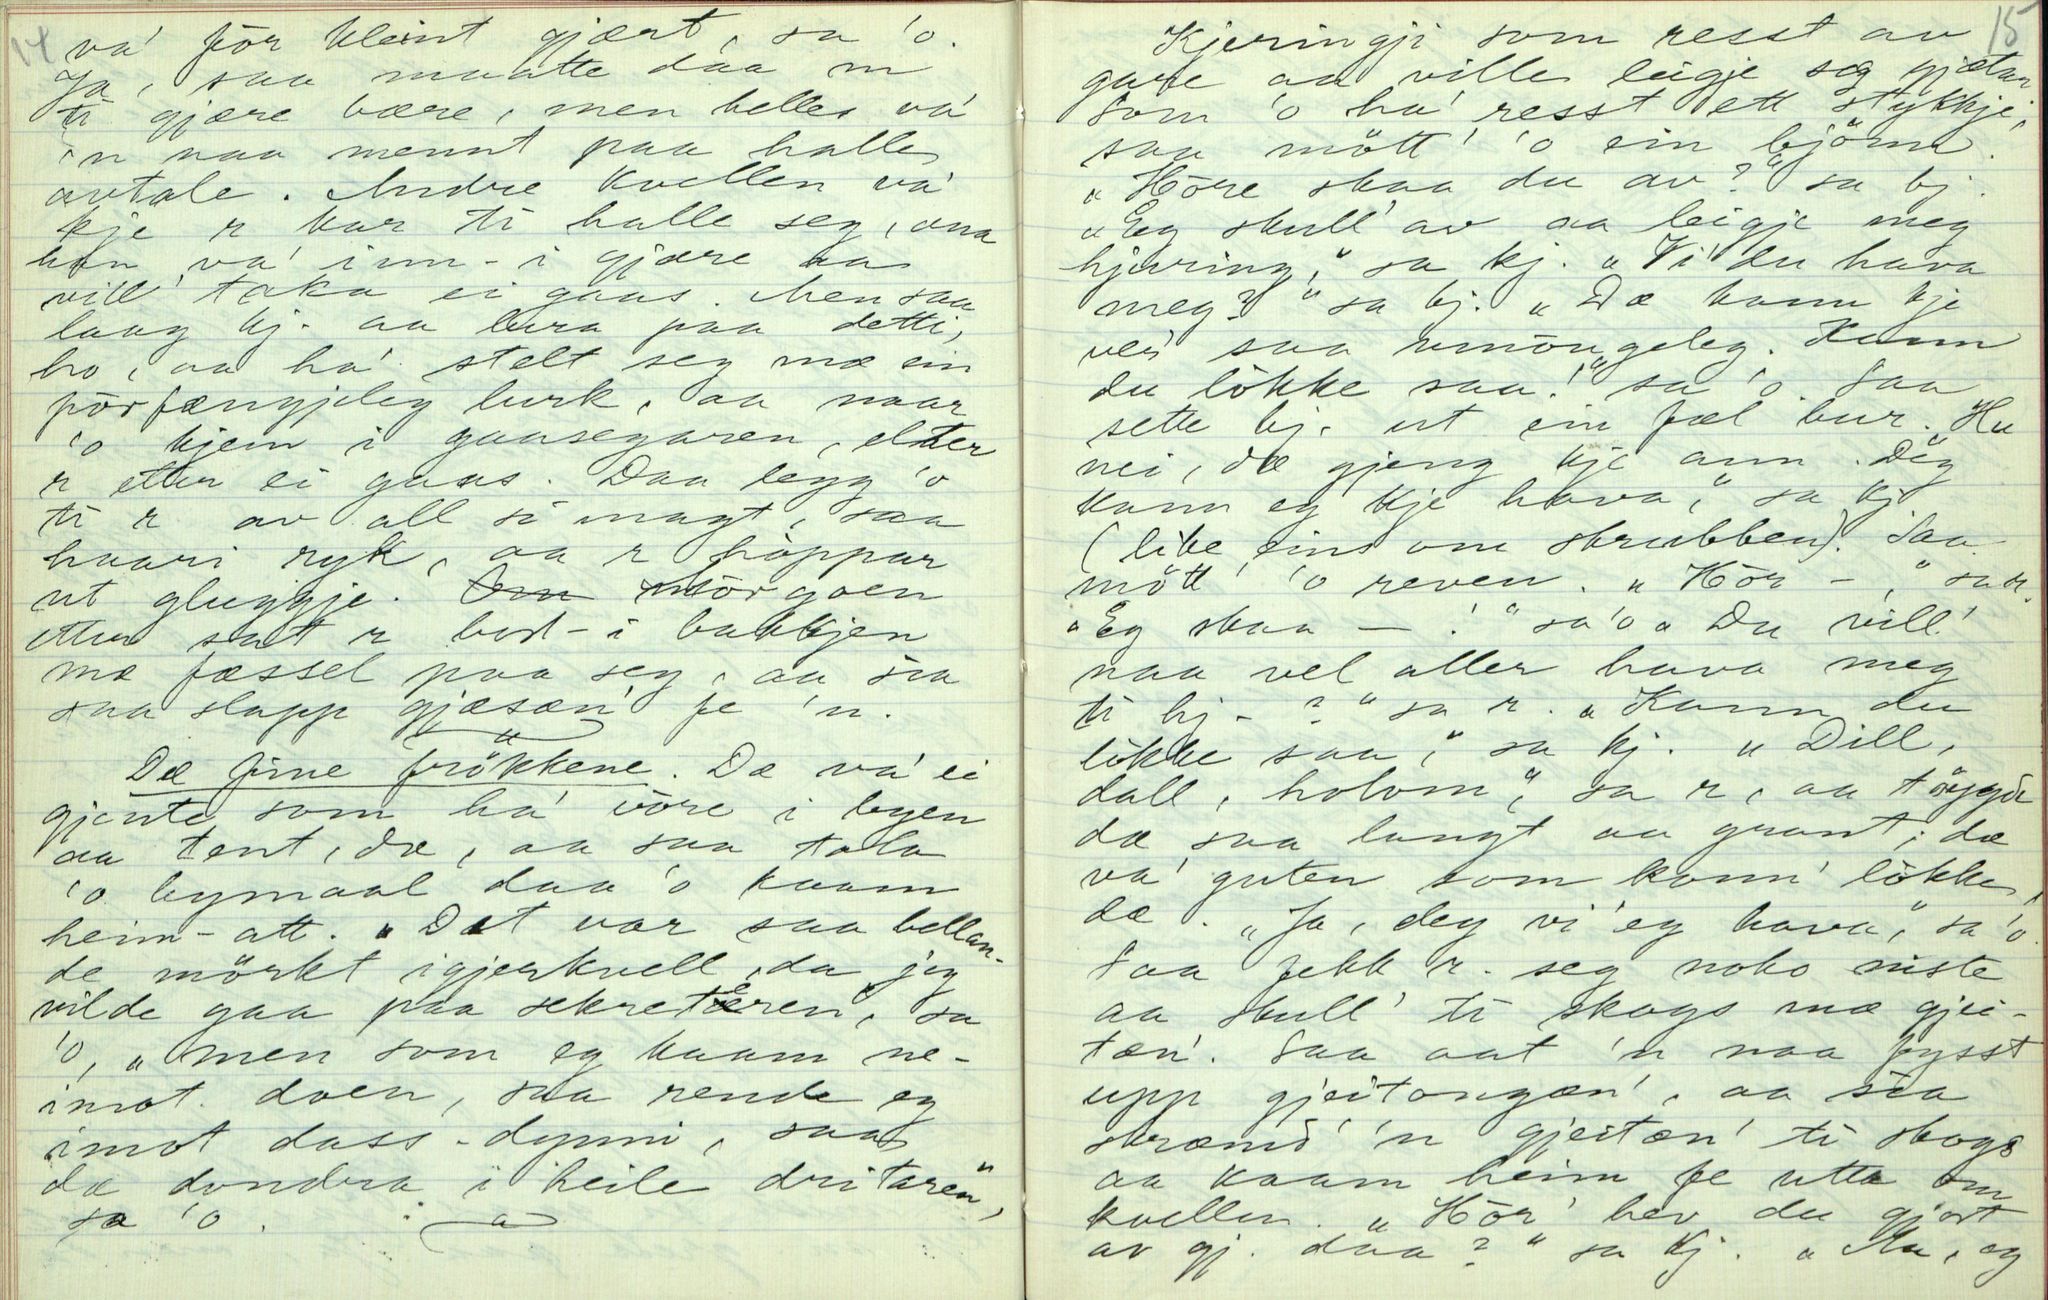 14
va' för kleint gjært, sa 'o.
Ja, saa maatte daa 'n
ti gjære bære, men helles va'
'n naa mennt paa halle
avtale. Andre kvellen va'
kje r kar ti halle seg, ana
han va' inn-i gjære aa
vill' taka ei gaas. Men saa
laag kj. aa lura paa detti,
ho, aa ha' stelt seg mæ ein
förfængjeleg lurk, aa naar
'o kjem i gaasegaren, elter
r etter ei gaas. Daa legg 'o
ti r av all si magt, saa
haari ryk, aa r höppar
ut gluggje. Om mörgoen
etter sat r bort-i bakkjen
mæ fæssel paa seg, aa sia
saa slapp gjæsæn' fe 'n.
Dæ fine frökkene. Dæ va' ei
gjente som ha' vöre i byen
aa tent, dæ, aa saa tala
'o bymaal daa 'o kaam
heim-att. „Det var saa bellan-
de mörkt igjerkvell, da jeg
vilde gaa paa sekretæren", sa
'o, „men som eg kaam ne-
imot doen, saa rende eg
imot dass-dynni, saa
dæ dondra i heile dritaren",
sa 'o.
15
Kjeringji som resst av
gare aa ville leigje seg gjætar
Som 'o ha' resst ett stykkje,
saa mött' 'o ein björn.
„Höre skaa du av?" sa bj.
„Eg skull' av aa leigje meg
hjuring," sa kj. „Vi' du hava
meg?" sa bj. „Dæ kann kje
ver' saa umöugeleg. Kann
du lökke saa!" sa 'o. Saa
sette bj. ut ein fæl bur. „Hu
nei, dæ gjeng kje ann. Deg
kann eg kje hava," sa kj
(like eins om skrubben). Saa
mött' 'o reven. „Hör –," sa r.
„Eg skaa – !" sa 'o „Du vill'
naa vel aller hava meg
ti hj-?" sa r. „Kann du
lökke saa," sa kj. „Dill,
dall, holom", sa r, aa töygde
dæ saa langt aa grant; dæ
va' guten som konn' lökke,
dæ. „Ja, deg vi' eg hava," sa 'o.
Saa fekk r. seg noko niste
aa skull' ti skogs mæ gjei-
tæn'. Saa aat 'n naa fysst
upp gjeitongæn', aa sia
skræmd' 'n gjeitæn' ti skogs
aa kaam heim fe utta om
kvellen. „Hör' hev du gjort
av gj. daa?" sa kj. „Aa, eg